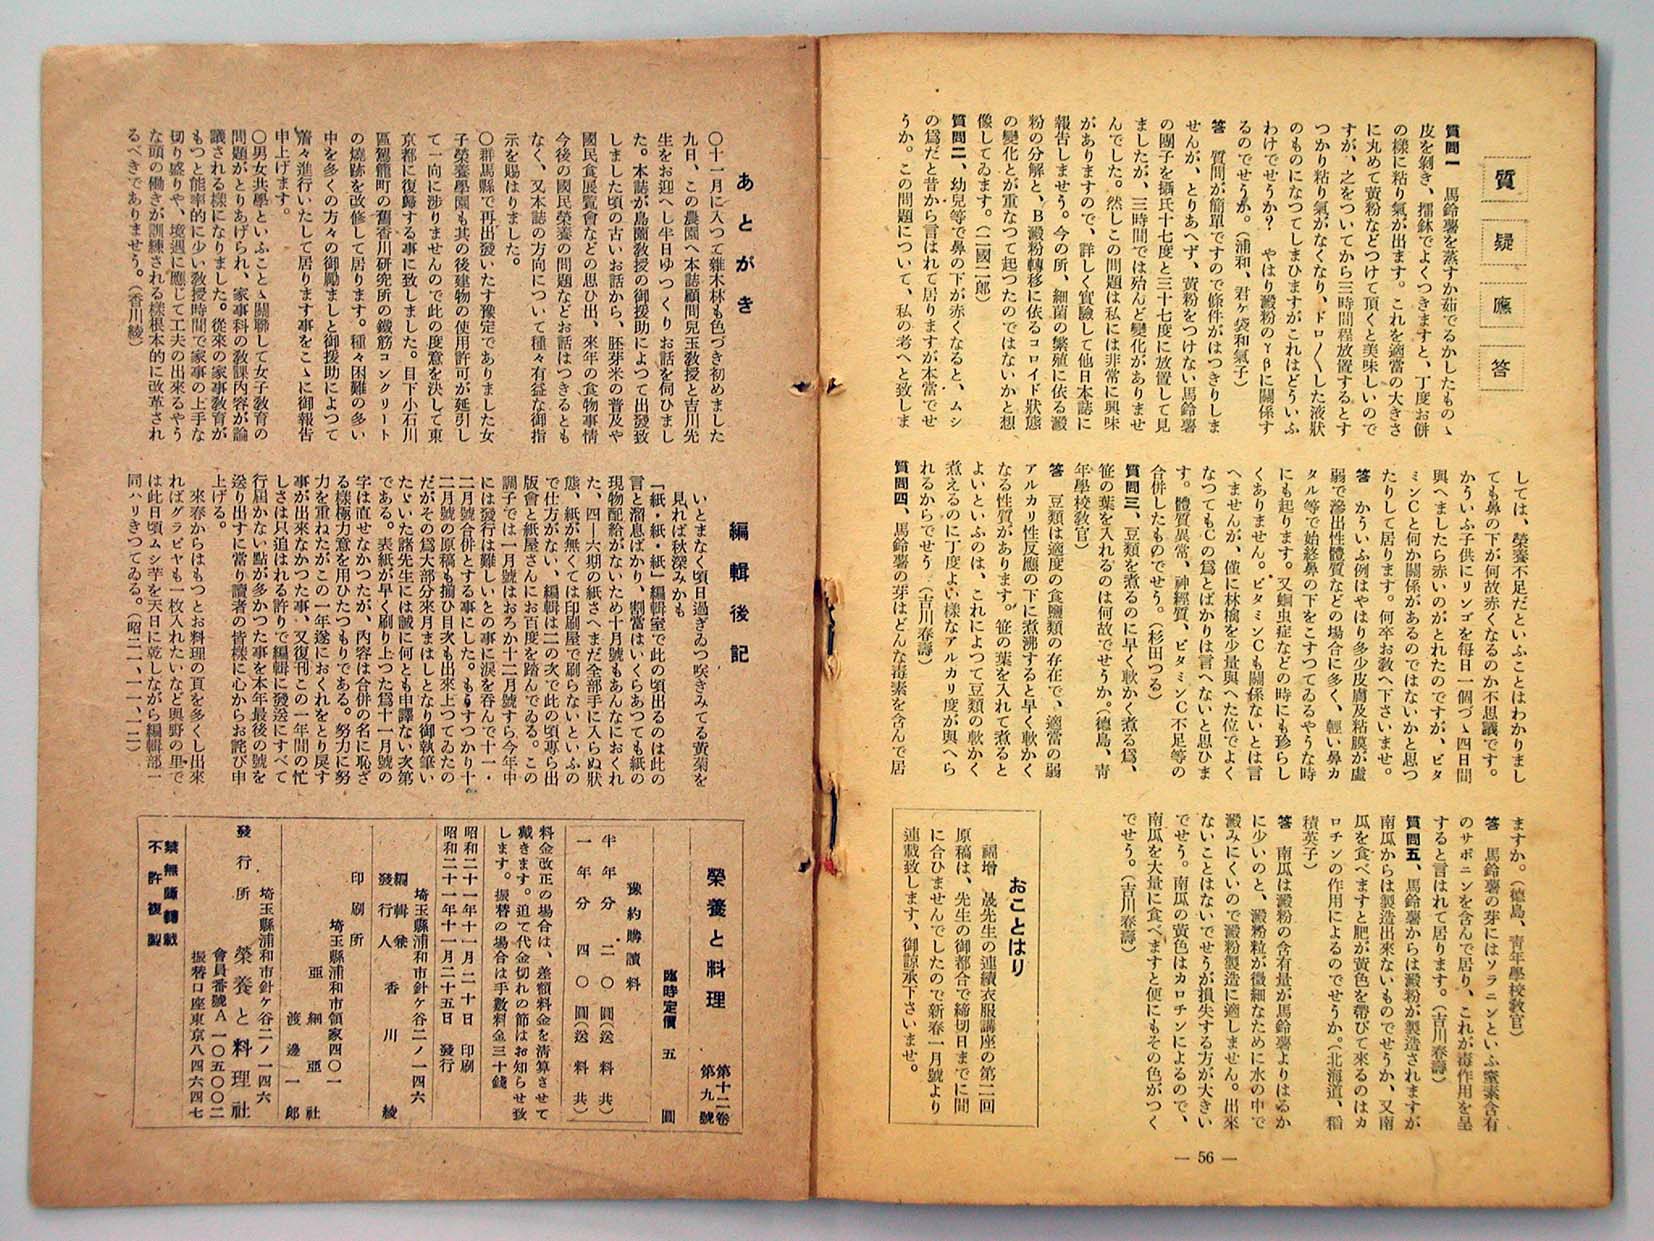 質疑應答
質問一　馬鈴薯を蒸すか茹でるかしたものゝ
皮を剝き、擂鉢でよくつきますと、丁度お餅
の樣に粘り氣が出ます。これを適當の大きさ
に丸めて黃粉などつけて頂くと美味しいので
すが、之をついてから三時間程放置するとす
つかり粘り氣がなくなり、ドロ〱した液狀
のものになつてしまひますがこれはどういふ
わけでせうか？　やはり澱粉のγβに關係す
るのでせうか。（浦和、君ヶ袋和氣子）
答　質問が簡單ですので條件がはつきりしま
せんが、とりあへず、黃粉をつけない馬鈴薯
の團子を攝氏十七度と三十七度に放置して見
ましたが、三時間では殆んど變化がありませ
んでした。然しこの問題は私には非常に興味
がありますので、詳しく實驗して他日本誌に
報告しませう。今の所、細菌の繁殖に依る澱
粉の分解と、B澱粉轉移に依るコロイド狀態
の變化とが重なつて起つたのではないかと想
像してゐます。（二國二郎）
質問二、幼兒等で鼻の下が赤くなると、ムシ
の爲だと昔から言はれて居りますが本當でせ
うか。この問題について、私の考へと致しま
しては、榮養不足だといふことはわかりまし
ても鼻の下が何故赤くなるのか不思議です。
かういふ子供にリンゴを每日一個づゝ四日間
與へましたら赤いのがとれたのですが、ビタ
ミンCと何か關係があるのではないかと思つ
たりして居ります。何卒お敎へ下さいませ。
答　かういふ例はやはり多少皮膚及粘膜が虛
弱で滲出性體質などの場合に多く、輕い鼻カ
タル等で始終鼻の下をこすつてゐるやうな時
にも起ります。又蛔虫症などの時にも珍らし
くありません。ビタミンCも關係ないとは言
へませんが、僅に林檎を少量與へた位でよく
なつてもCの爲とばかりは言へないと思ひま
す。體質異常、神經質、ビタミンC不足等の
合併したものでせう。（杉田つる）
質問三、豆類を煮るのに早く軟かく煮る爲、
笹の葉を入れるのは何故でせうか。（德島、靑
年學校敎官）
答　豆類は適度の食鹽類の存在で、適當の弱
アルカリ性反應の下に煮沸すると早く軟かく
なる性質があります。笹の葉を入れて煮ると
よいといふのは、これによつて豆類の軟かく
煮えるのに丁度よい樣なアルカリ度が與へら
れるからでせう（吉川春壽）
質問四、馬鈴薯の芽はどんな毒素を含んで居
ますか。（德島、靑年學校敎官）
答　馬鈴薯の芽にはソラニンといふ窒素含有
のサポニンを含んで居り、これが毒作用を呈
すると言はれて居ります。（吉川春壽）
質問五、馬鈴薯からは澱粉が製造されますが
南瓜からは製造出來ないものでせうか、又南
瓜を食べますと肥が黃色を帶びて來るのはカ
ロチンの作用によるのでせうか。（北海道、稻
積英子）
答　南瓜は澱粉の含有量が馬鈴薯よりはるか
に少いのと、澱粉粒が微細なために水の中で
澱みにくいので澱粉製造に適しません。出來
ないことはないでせうが損失する方が大きい
でせう。南瓜の黃色はカロチンによるので、
南瓜を大量に食べますと便にもその色がつく
でせう。（吉川春壽）
おことはり
福增　晟先生の連續衣服講座の第二回
原稿は、先生の御都合で締切日までに間
に合ひませんでしたので新春一月號より
連載致します、御諒承下さいませ。
— 56 —
あとがき
〇十一月に入つて雜木林も色づき初めました
九日、この農園へ本誌顧問兒玉敎授と吉川先
生をお迎へし半日ゆつくりお話を伺ひまし
た。本誌が島薗敎授の御援助によつて出發致
しました頃の古いお話から、胚芽米の普及や
國民食展覽會などの思ひ出、來年の食物事情
今後の國民榮養の問題などお話はつきるとも
なく、又本誌の方向について種々有益な御指
示を賜はりました。
〇群馬縣で再出發いたす豫定でありました女
子榮養學園も其の後建物の使用許可が延引し
て一向に涉りませんので此の度意を決して東
京都に復歸する事に致しました。目下小石川
區駕籠町の舊香川研究所の鐵筋コンクリート
の燒跡を改修して居ります。種々困難の多い
中を多くの方々の御勵ましと御援助によつて
着々進行いたして居ります事をこゝに御報告
申上げます。
〇男女共學といふことゝ關聯して女子敎育の
問題がとりあげられ、家事科の敎課內容が論
議される樣になりました。從來の家事敎育が
もつと能率的に少い敎授時間で家事の上手な
切り盛りや、境遇に應じて工夫の出來るやう
な頭の働きが訓練される樣根本的に改革され
るべきでありませう。（香川綾）
編輯後記
いとまなく頃日過ぎゐつ咲きみてる黃菊を
見れば秋深みかも
「紙・紙・紙」編輯室で此の頃出るのは此の
言と溜息ばかり、割當はいくらあつても紙の
現物配給がないため十月號もあんなにおくれ
た、四—六期の紙さへまだ全部手に入らぬ狀
態、紙が無くては印刷屋で刷らないといふの
で仕方がない、編輯は二の次で此の頃專ら出
版會と紙屋さんにお百度を踏んでゐる。この
調子では一月號はおろか十二月號すら今年中
には發行は難しいとの事に淚を呑んで十一・
二月號合併とする事にした。もうすつかり十
二月號の原稿も揃ひ目次も出來上つてゐたの
だがその爲大部分來月まはしとなり御執筆い
たゞいた諸先生には誠に何とも申譯ない次第
である。表紙が早く刷り上つた爲十一月號の
字は直せなかつたが、內容は合併の名に恥ざ
る樣極力意を用ひたつもりである。努力に努
力を重ねたがこの一年遂におくれをとり戾す
事が出來なかつた事、又復刊この一年間の忙
しさは只追はれる許りで編輯に發送にすべて
行屆かない點が多かつた事を本年最後の號を
送り出すに當り讀者の皆樣に心からお詫び申
上げる。
來春からはもつとお料理の頁を多くし出來
ればグラビヤも一枚入れたいなど與野の里で
は此日頃ムシ芋を天日に乾しながら編輯部一
同ハリきつてゐる。（昭二一、一一、一三）
榮養と料理　第十二卷　第九號
臨時定價　五圓
豫約購讀料
半年分　二〇圓（送料共）
一年分　四〇圓（送料共）
料金改正の場合は、差額料金を清算させて
戴きます。追て代金切れの節はお知らせ致
します。振替の場合は手數料金三十錢
昭和二十一年十一月二十日　印刷
昭和二十一年十一月二十五日　發行
埼玉縣浦和市針ヶ谷二ノ一四六
編輯兼發行人　香川綾
埼玉縣浦和市領家四〇一
印刷所　亞細亞社
渡邊一郎
埼玉縣浦和市針ヶ谷二ノ一四六
發行所　榮養と料理社
會員番號A一〇五〇〇二
振替口座東京八四六四七
禁無斷轉載
不許複製